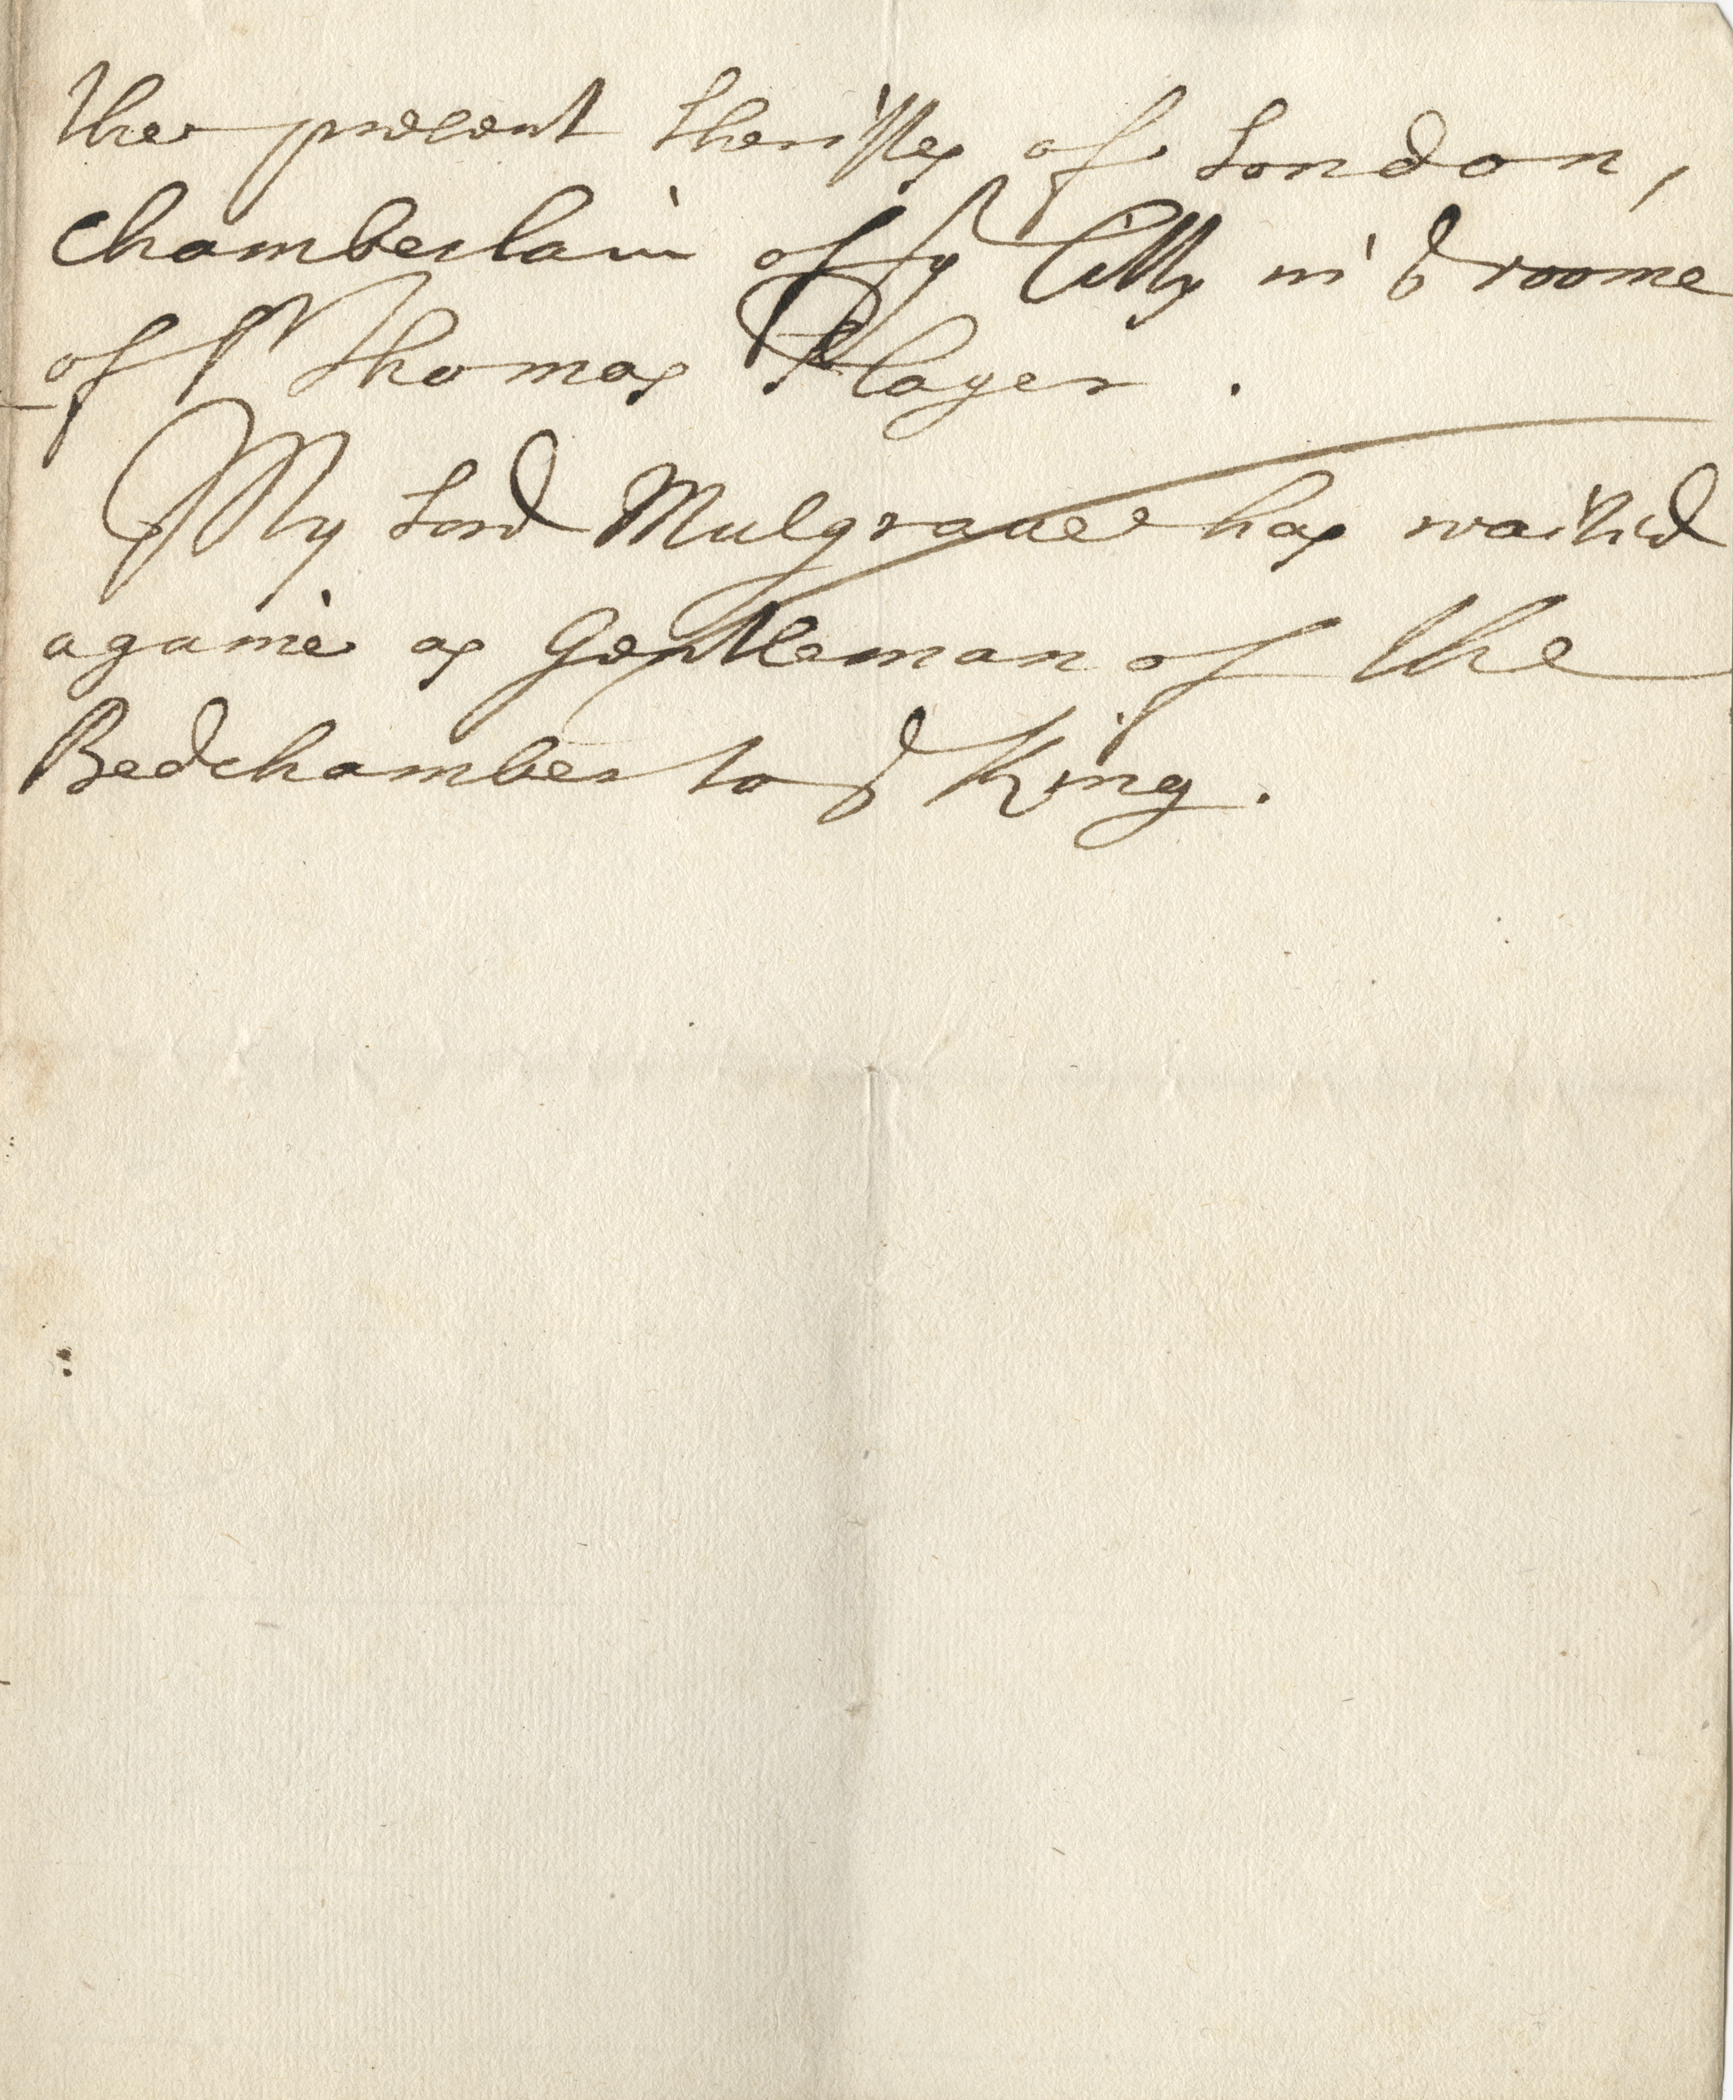 the present Sheriffes of London,
Chamberlain of ye Citty in ye roome
of Sr Thomas Player.
My Lord Mulgrave has waited
againe as Gentleman of the
Bedchamber to ye King.